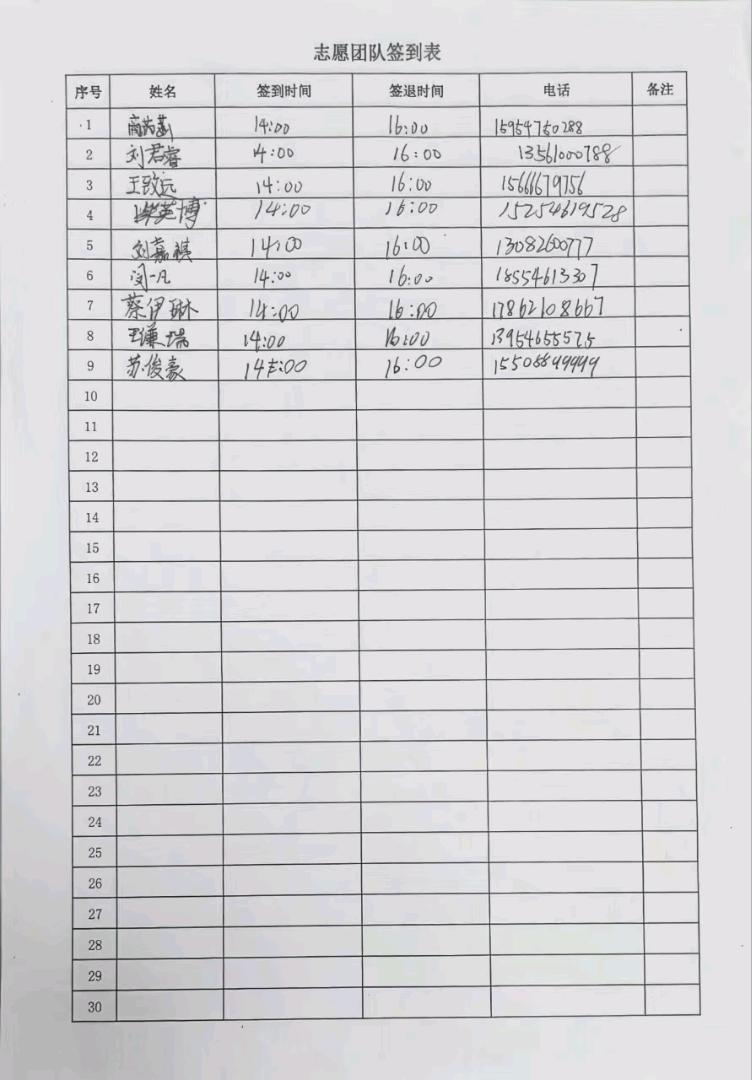 志愿团队签到表
序号 姓名 签到时间 签退时间 电话 备注
1 14:00 16:00 15954750288
2 刘君睿 4:00 16:00 13561000788
3 王致远 14:00 16:00 15666679756
4 英博 14:00 16:00 15254619528
5 刘嘉祺 14:00 16:00 13082600777
6 闵一凡 14:00 16:00 18554613307
7 蔡伊琳 14:00 16:00 17862108667
8 王谦瑞 14:00 16:00 13954655575
9 苏俊豪 14:00 16:00 15508899999
10
11
12
13
14
15
16
17
18
19
20
21
22
23
24
25
26
27
28
29
30